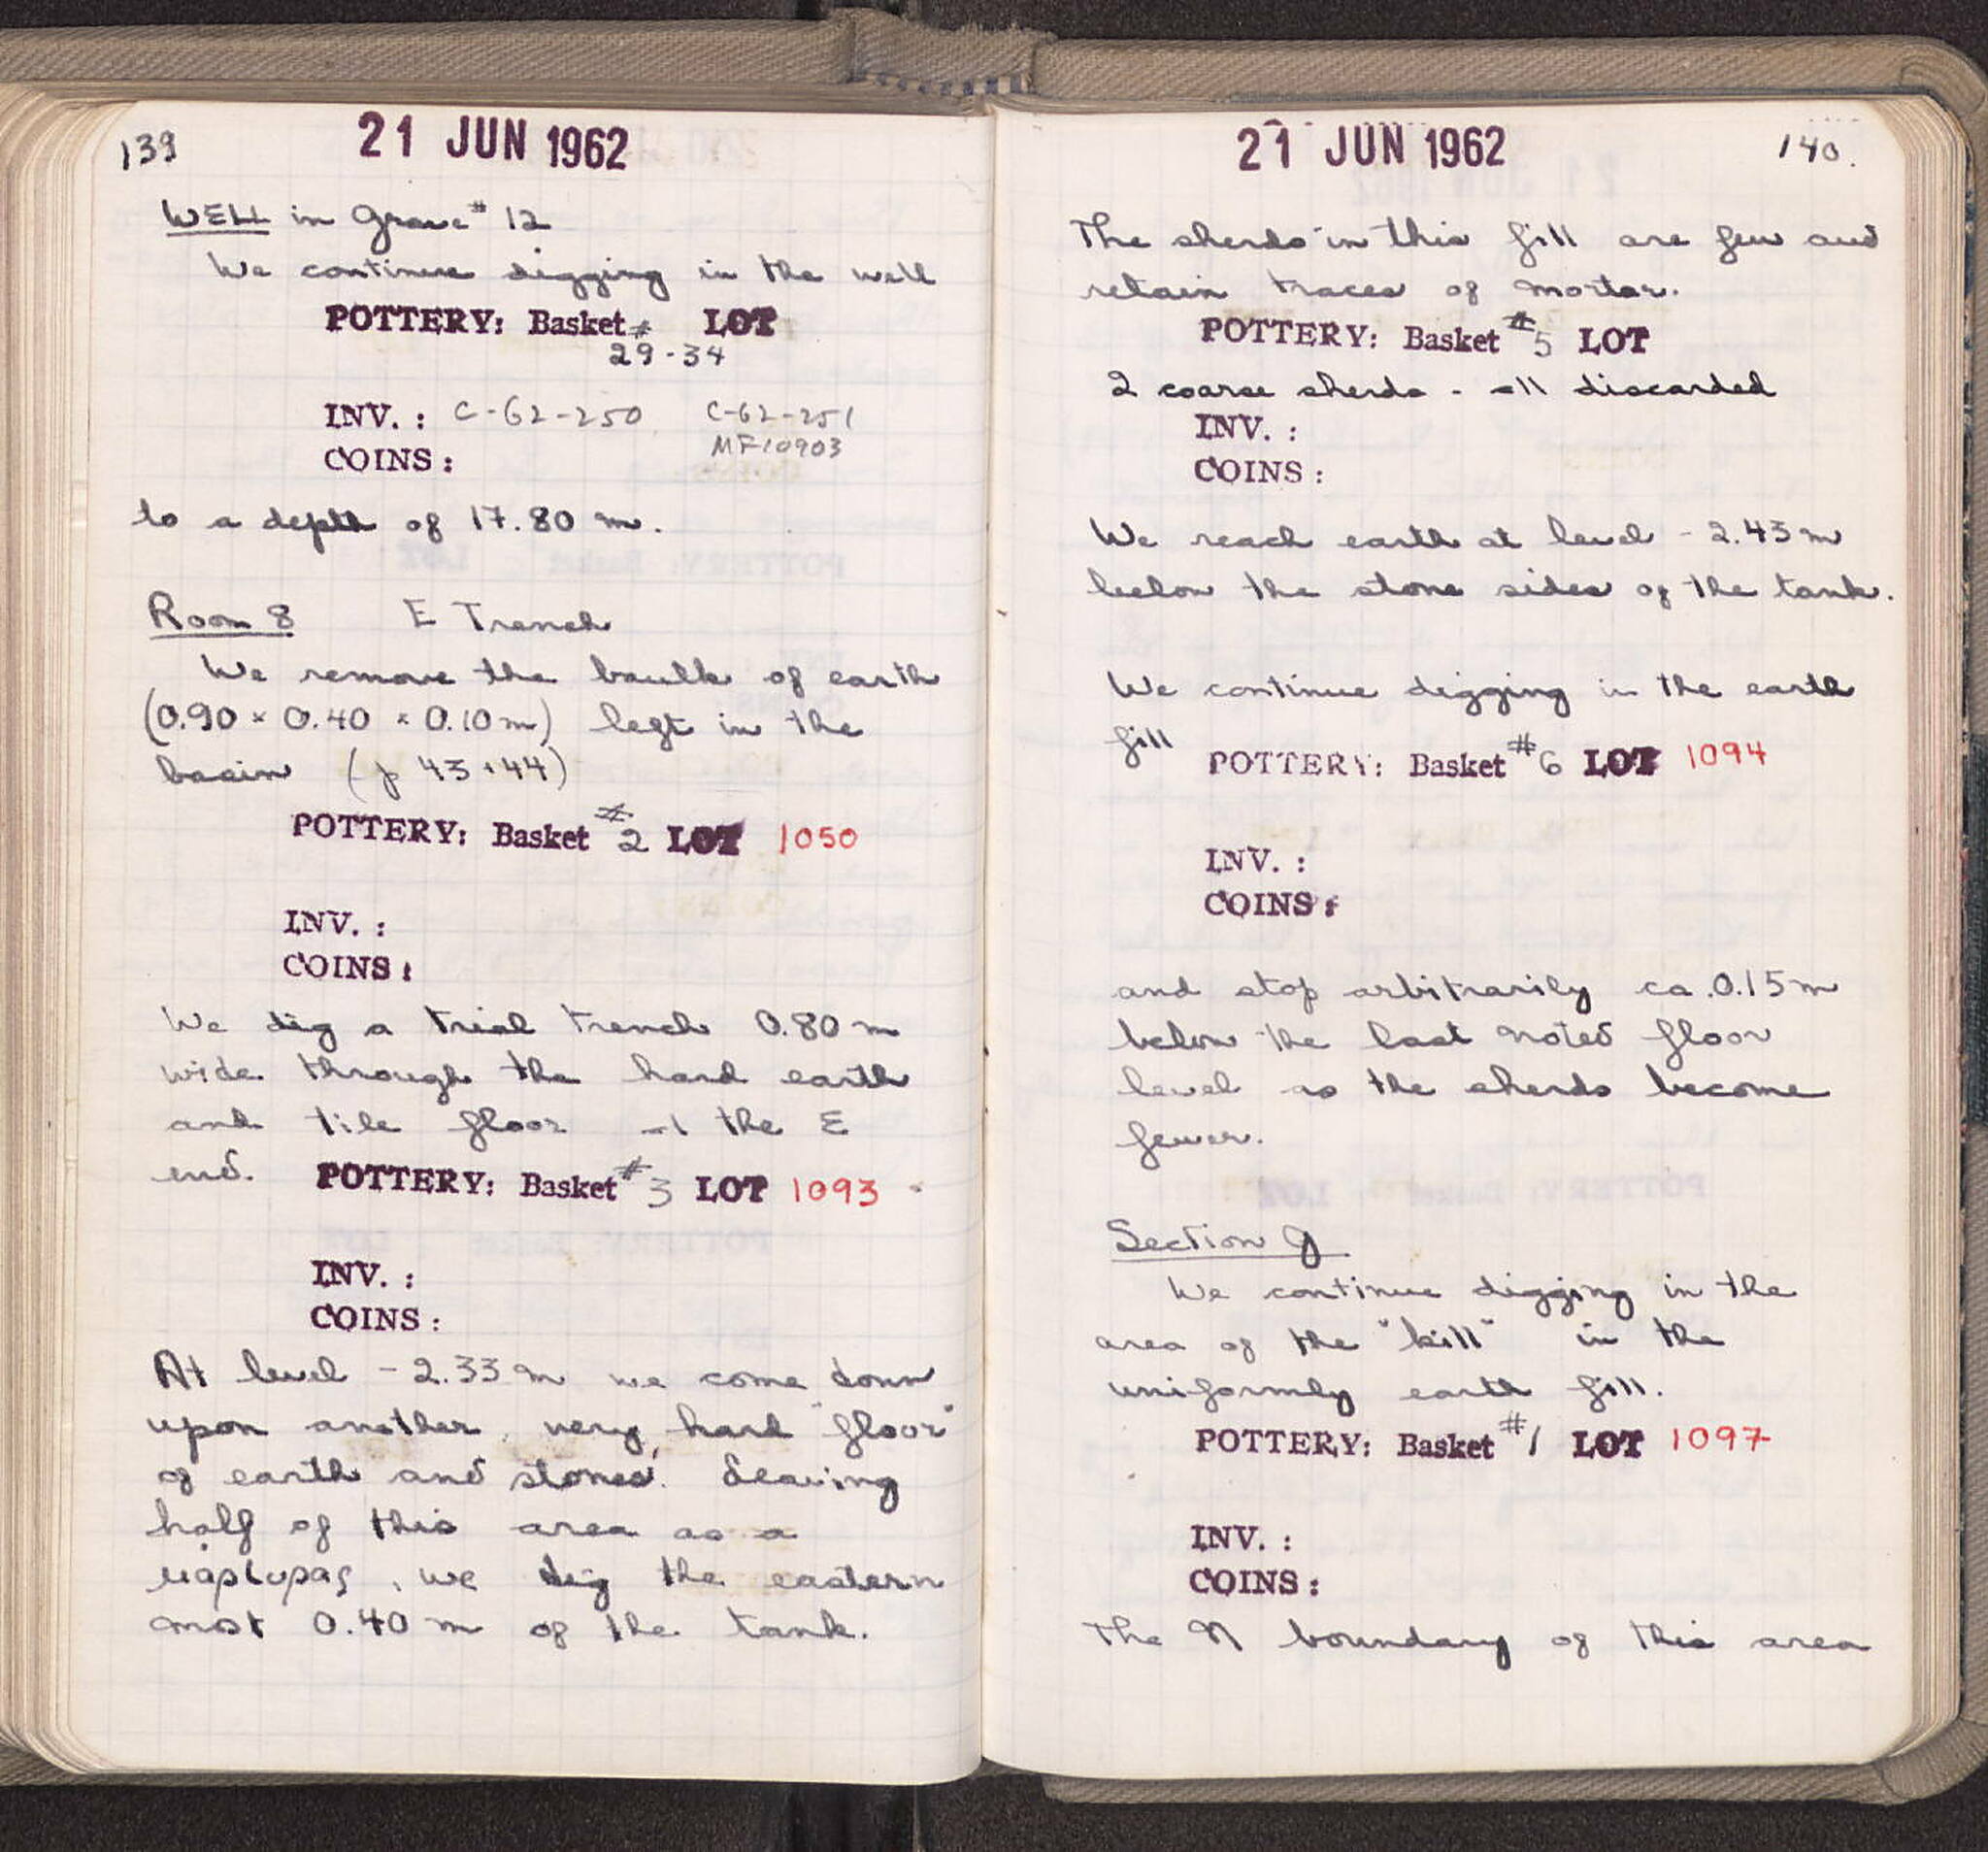 139
21 JUN 1962
WELL in Grave # 12
We continue digging in the well
POTTERY: Basket # LOT
29-34
INV. : C-62-250 C-62-251
MF10903
COINS :
to a depth of 17.80 m.
Room 8 E Trench
We remove the baulk of earth
(0.90 × 0.40 × 0.10 m) left in the
basin (p 43+44)
POTTERY: Basket # 2 LOT 1050
INV. :
COINS :
We dig a trial trench 0.80 m
wide through the hard earth
and tile floor at the E
end. POTTERY: Basket # 3 LOT 1093
INV. :
COINS :
At level - 2.33 m we come down
upon another, very hard "floor"
of earth and stones. Leaving
half of this area as a
μάρτυρας, we dig the eastern
most 0.40 m of the tank.
21 JUN 1962
140.
The sherds in this fill are few and
retain traces of mortar.
POTTERY: Basket # 5 LOT
2 coarse sherds - all discarded
INV. :
COINS :
We reach earth at level - 2.43 m
below the stone sides of the tank.
We continue digging in the earth
fill POTTERY: Basket # 6 LOT 1094
INV. :
COINS :
and stop arbitrarily ca. 0.15 m
below the last noted floor
level as the sherds become
fewer.
Section J
We continue digging in the
area of the "kill" in the
uniformly earth fill.
POTTERY: Basket # 1 LOT 1097
INV. :
COINS :
The N boundary of this area